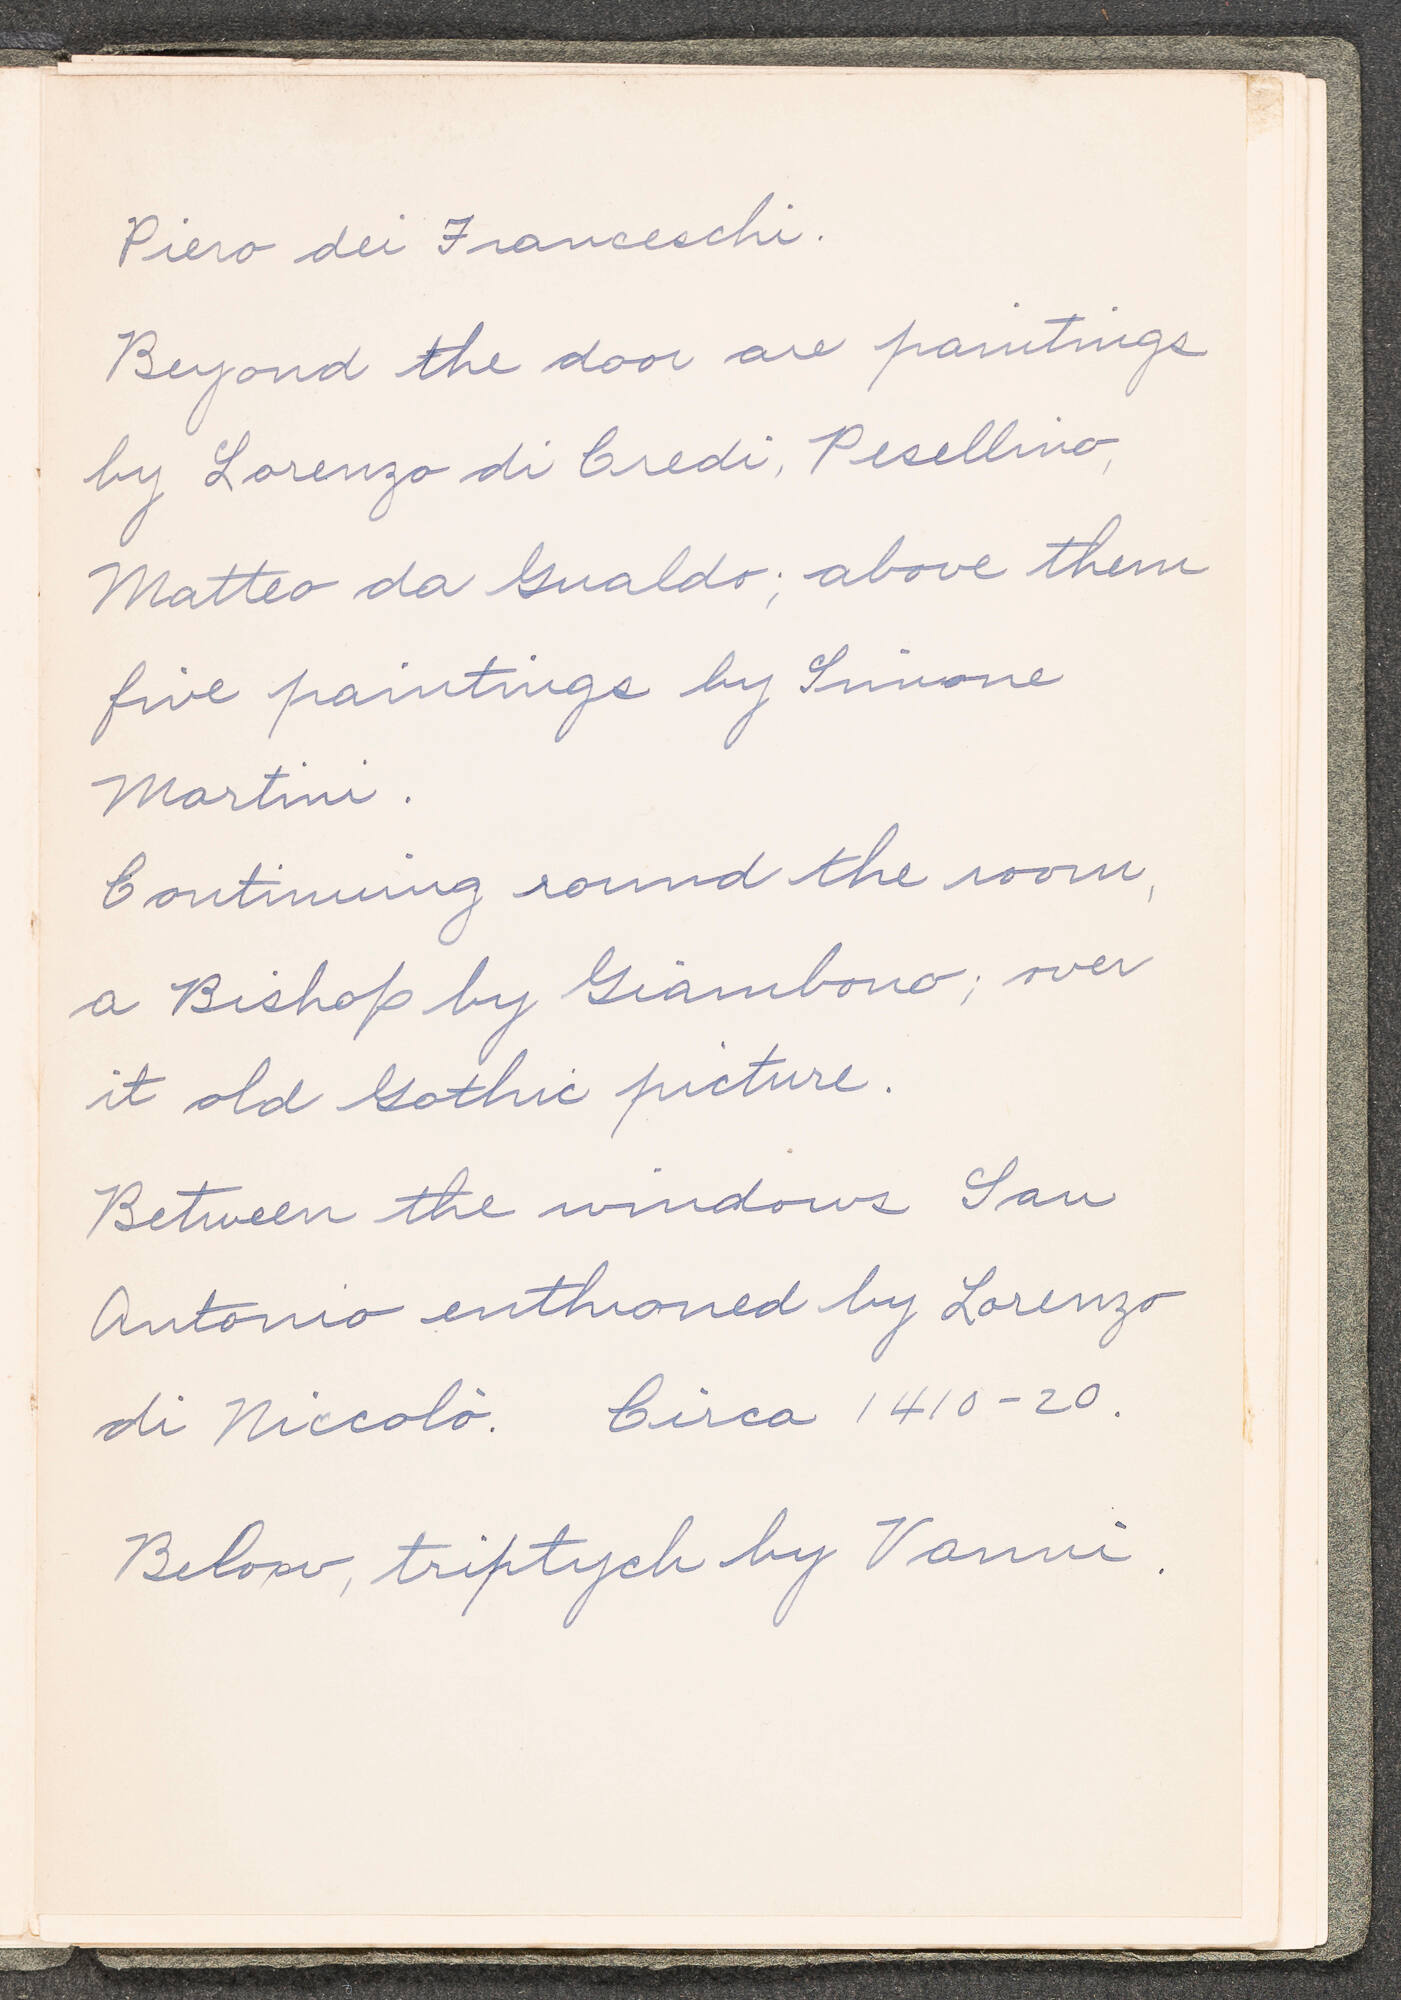 Piero dei Franceschi.
Beyond the door are paintings
by Lorenzo di Credi, Pesellino,
Matteo da Gualdo; above them
five paintings by Simone
Martini.
Continuing round the room,
a Bishop by Giambono; over
it old Gothic picture.
Between the windows San
Antonio enthroned by Lorenzo
di Niccolò. Circa 1410-20.
Below, triptych by Vanni.